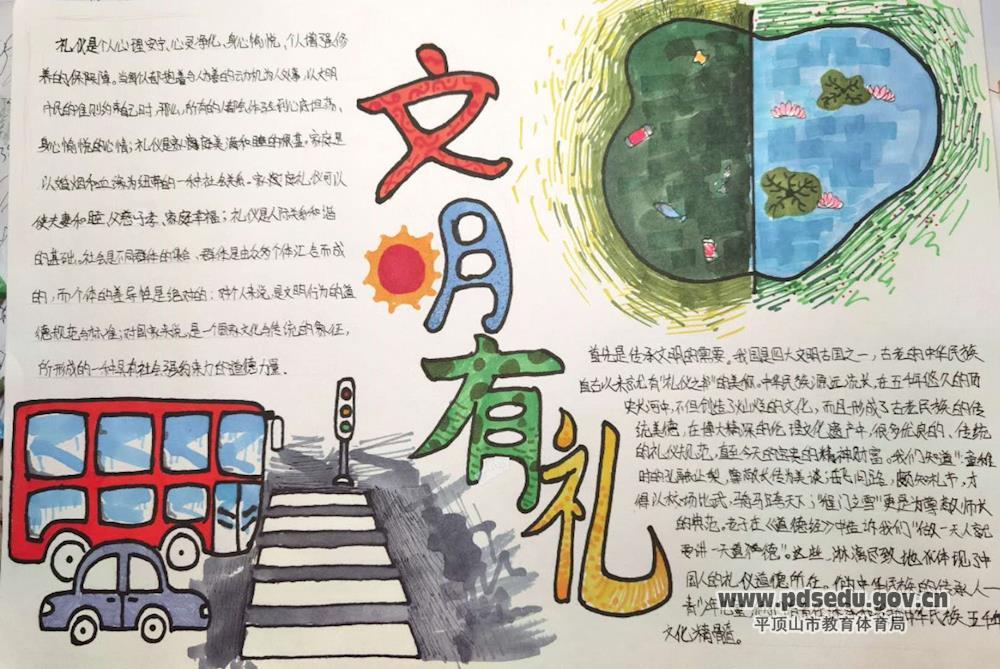 礼仪是个人心理安宁、心灵净化、身心愉悦、个人增强修
养的保障。当每个人都抱着与人为善的动机为人处事,以文明
市民的准则约束自己时,那么,所有的人都会体验到心底坦荡、
身心愉悦的心情;礼仪是家庭美满和睦的根基。家庭是
以婚姻和血缘为纽带的一种社会关系。家庭礼仪可以
使夫妻和睦、父慈子孝、家庭幸福;礼仪是人际关系和谐
的基础。社会是不同群体的集合、群体是由众多个体汇合而成
的,而个体的差异性是绝对的;对个人来说,是文明行为的道
德规范与标准;对国家来说,是一个国家文化与传统的象征,
所形成的一种具有社会强约束力的道德力量.
文明有礼
首先是传承文明的需要。我国是四大文明古国之一,古老的中华民族
自古以来就有"礼仪之邦"的美称。中华民族源远流长,在五千年悠久的历
史长河中,不但创造了灿烂的文化,而且形成了古老民族的传
统美德,在博大精深的伦理文化遗产中,很多优良的、传统
的礼仪规范,直至今天的宝贵的精神财富。我们知道"童稚
时的孔融让梨,尊敬长传为美谈;岳飞问路,颇知礼节,才
得以校场比武,骑马跨天下;"程门立雪"更是为尊敬师长
的典范。老子在《道德经》中告诉我们"做一天人
要讲一天道德"。这些,淋漓尽致地体现了中
国人的礼仪道德所在。作为中华民族的传承人一
青少年儿童
文化精髓。
www.pdsedu.gov.cn
平顶山市教育体育局